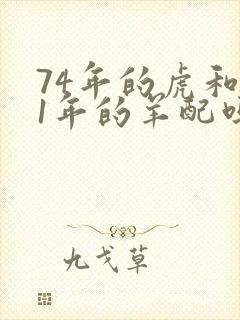 74年的虎和
1年的羊配
九戈草